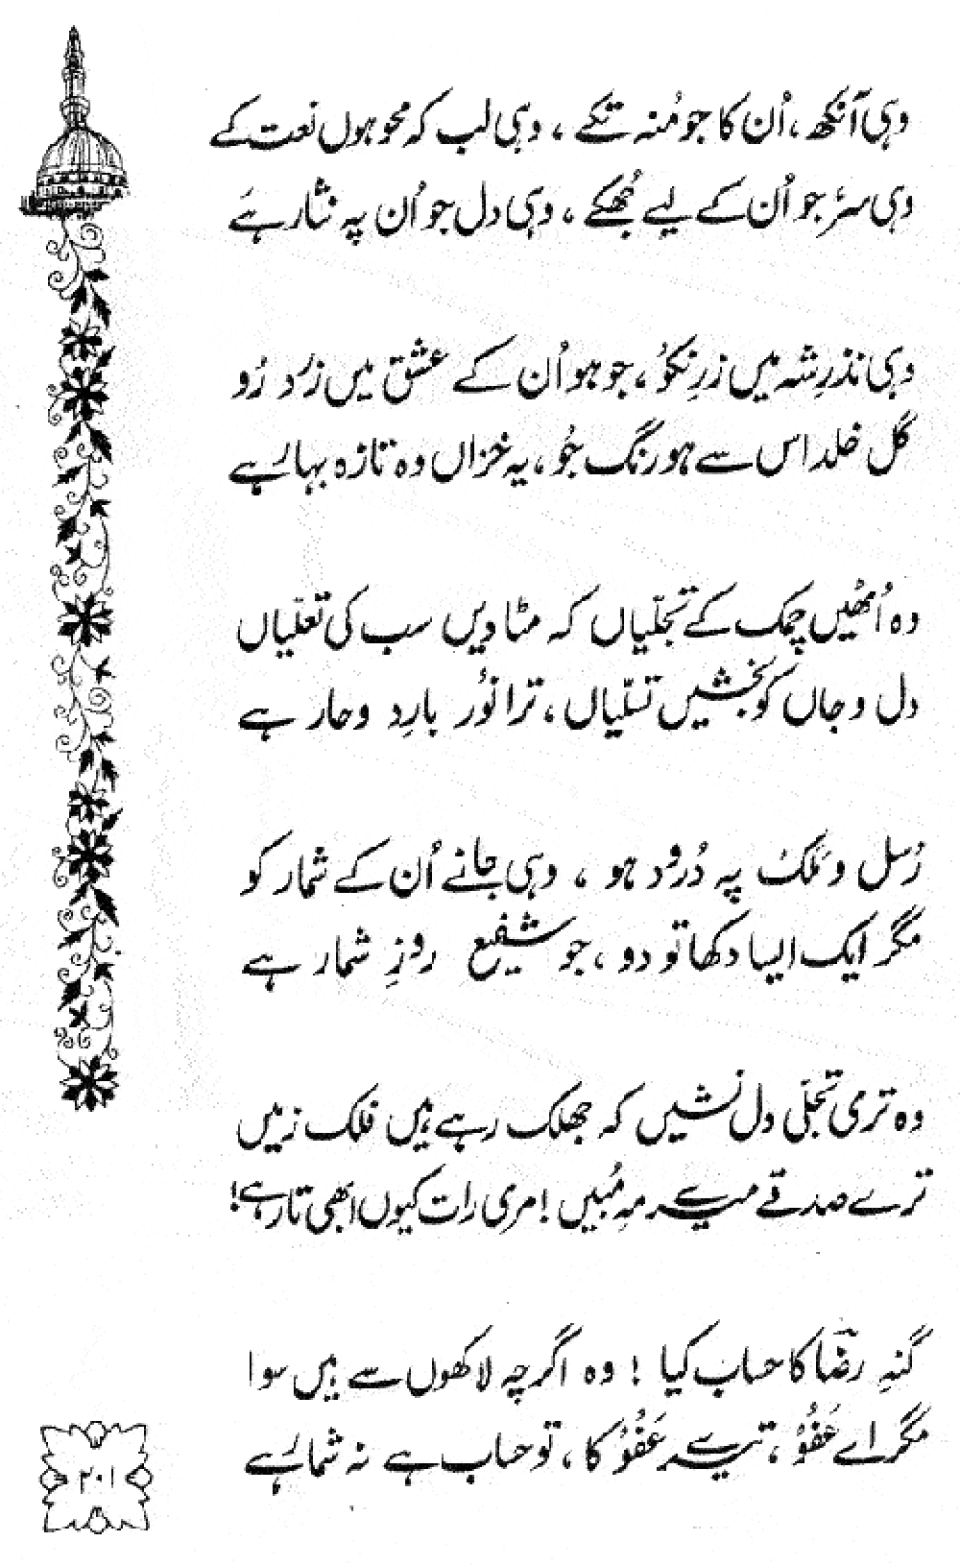 وہی آنکھ، اُن کا جو مُنہ تکے ، وہی لب کہ محو ہوں نعت کے
وہی سَر جو اُن کے لیے جُھکے ، وہی دل جو اُن پہ نثار ہے
وہی نذرِ شہ میں زرِ نکو، جو ہو اُن کے عشق میں زَرد رُو
گُلِ خلد اس سے ہو رنگ جُو، یہ خزاں وہ تازہ بہار ہے
وہ اُٹھیں چمک کے تجلّیاں کہ مٹا دیں سب کی تعلّیاں
دل و جاں کو بخشیں تسلّیاں، ترا نور بارِد و حار ہے
رُسل و مَلَک پہ دُرود ہو ، وہی جانے اُن کے شمار کو
مگر ایک ایسا دکھا تو دو ، جو شفیع روزِ شمار ہے
وہ تری تجلّی دل نشیں کہ جھلک رہے ہیں فلک زمیں
ترے صدقے میرے مہِ مُبیں ! مری رات کیوں ابھی تار ہے!
گنہِ رضؔا کا حساب کیا ! وہ اگرچہ لاکھوں سے ہیں سوا
مگر اے عَفُوّ ، تیرے عَفْو کا ، تو حساب ہے نہ شمار ہے
۲۰۱